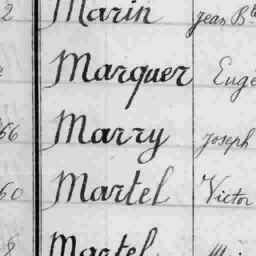 2 Marin Jean Bte
Marquer Eugè
66 Marry Joseph
60 Martel Victor
8 Martel